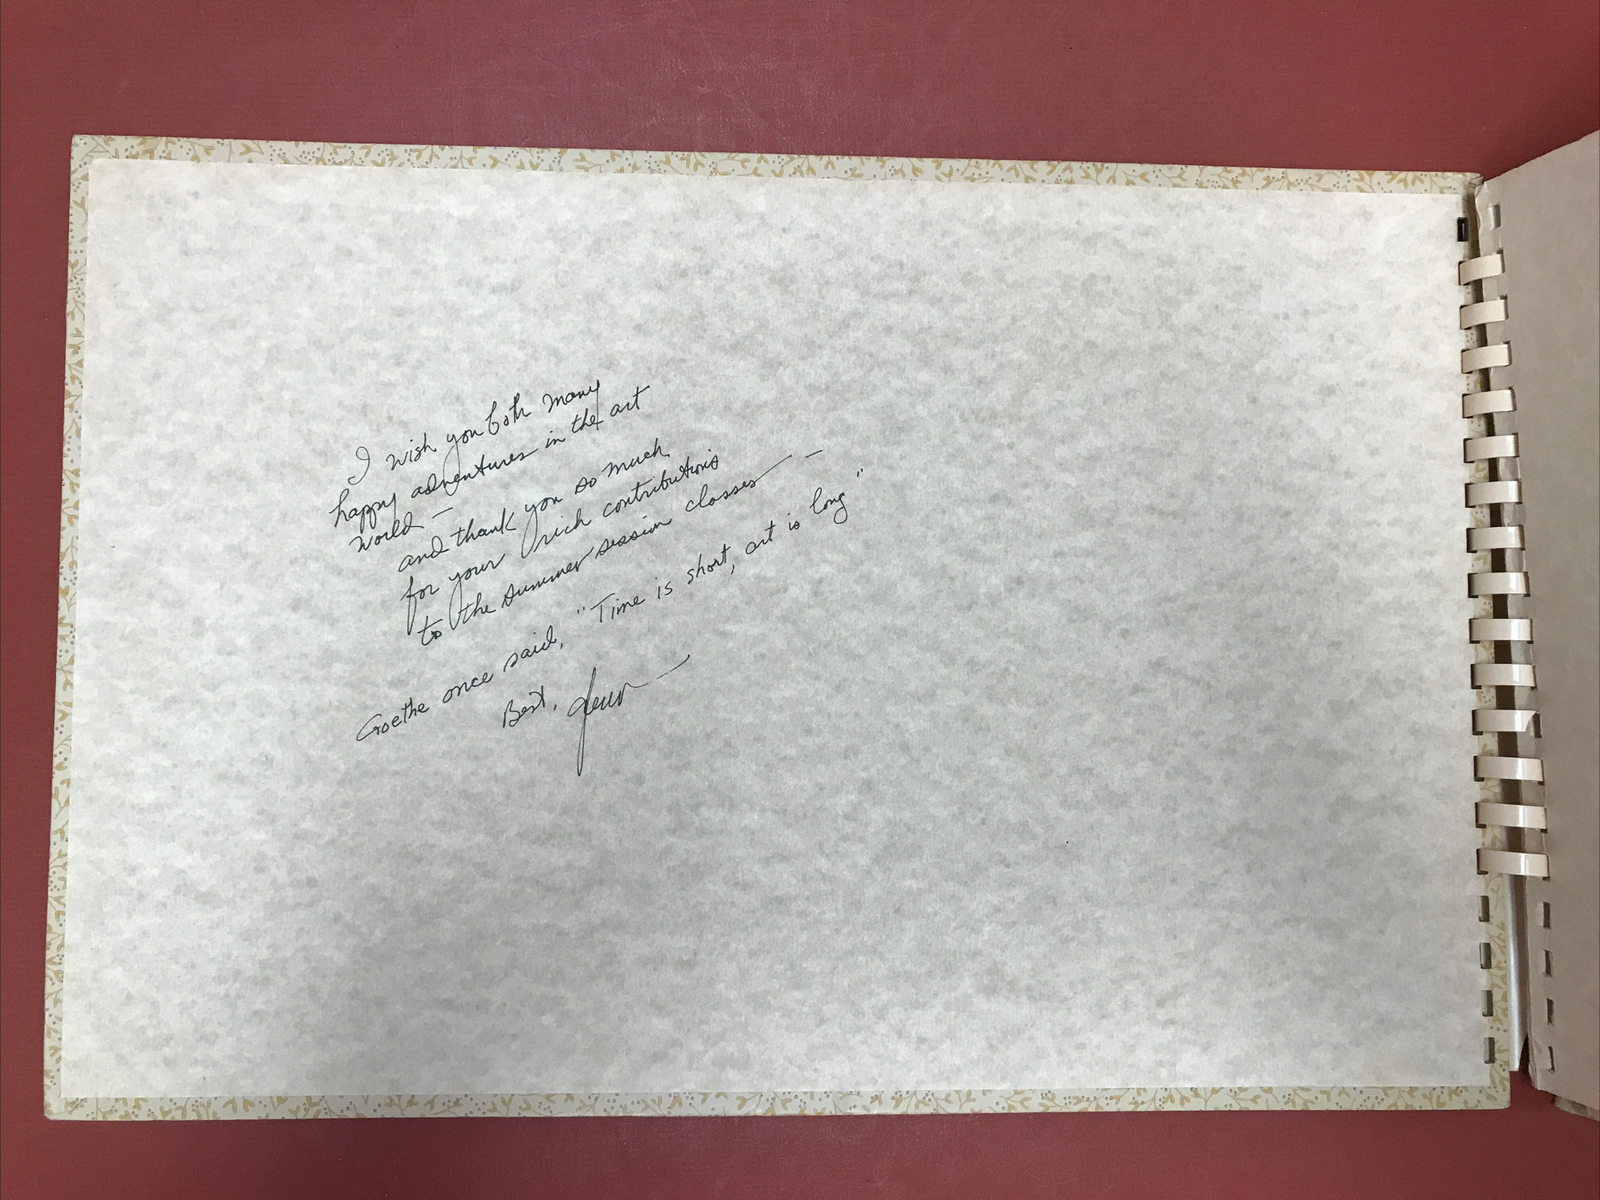 I wish you both many
happy adventures in the art
world –
and thank you so much
for your rich contributions
to the summer session classes – –
Goethe once said, "Time is short, art is long"
Best,